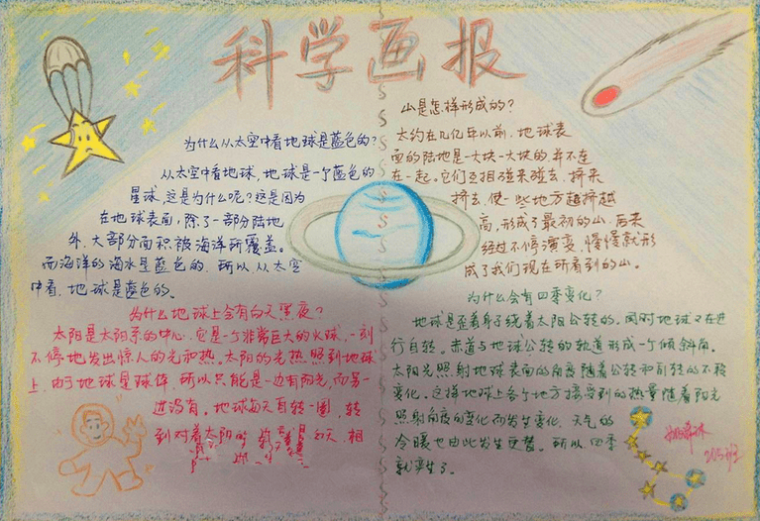 科学画报
为什么从太空中看地球是蓝色的?
从太空中看地球,地球是一个蓝色的
星球,这是为什么呢?这是因为
在地球表面,除了一部分陆地
外,大部分面积被海洋所覆盖。
而海洋的海水是蓝色的,所以,从太空
中看,地球是蓝色的。
为什么地球上会有白天黑夜?
太阳是太阳系的中心,它是一个非常巨大的火球,一刻
不停地发出惊人的光和热。太阳的光热照到地球
上,由于地球是球体,所以只能是一边有阳光,而另一
边没有。地球每天自转一圈,转
到对着太阳的 是白天,相
山是怎样形成的?
大约在几亿年以前,地球表
面的陆地是一大块一大块的,并不连
在一起。它们互相碰来碰去,挤来
挤去,使一些地方越挤越
高,形成了最初的山,后来
经过不停演变,慢慢就形
成了我们现在所看到的山。
为什么会有四季变化?
地球是歪着身子绕着太阳公转的。同时地球又在进
行自转。赤道与地球公转的轨道形成一个倾斜角。
太阳光照射地球表面的角度随着公转和自转的不移
变化。这样地球上各个地方接受到的热量随着阳光
照射角度的变化而发生变化,天气的
冷暖也由此发生更替。所以,四季
就产生了。